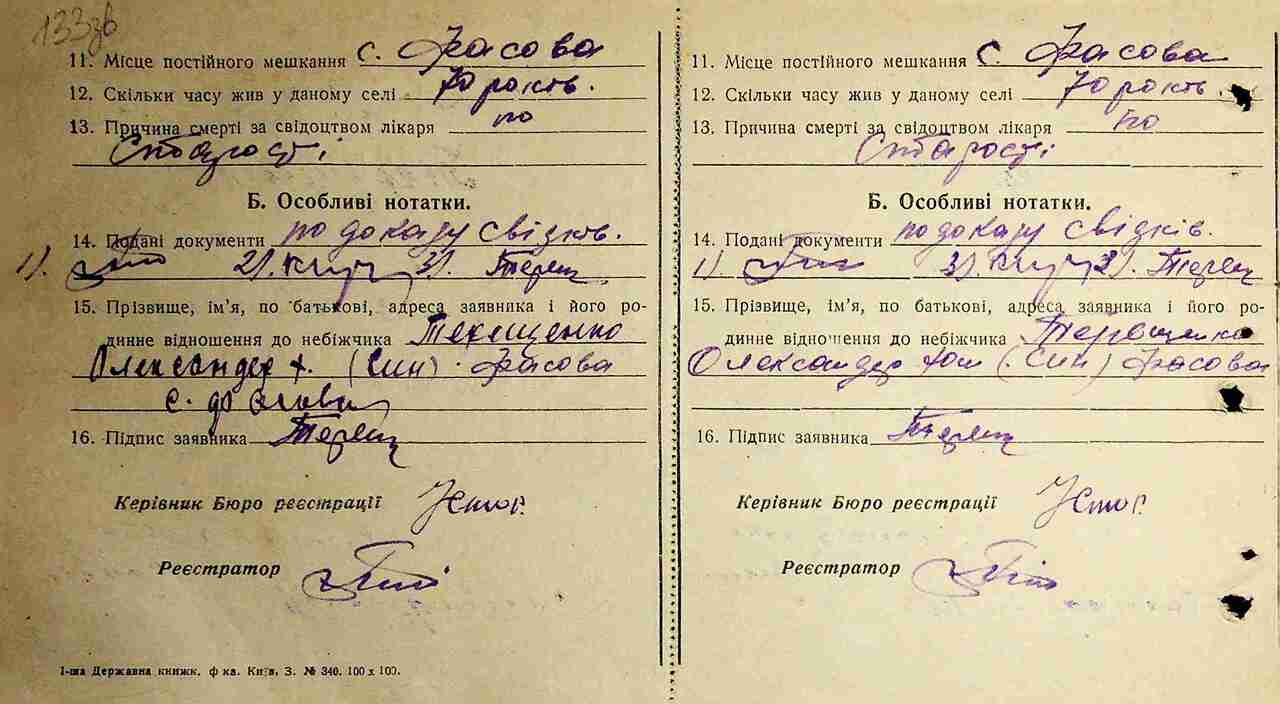 133зв
11. Місце постійного мешкання с. Фасова
12. Скільки часу жив у даному селі 70 років.
13. Причина смерті за свідоцтвом лікаря по
Старості
Б. Особливі нотатки.
14. Подані документи по доказу свідків.
1). 2). 3). Терещ
15. Прізвище, ім’я, по батькові, адреса заявника і його ро-
динне відношення до небіжчика Терещенко
Олександер Х. (Син) Фасова
с. Фасова
16. Підпис заявника Терещ
Керівник Бюро реєстрації
Реєстратор
1-ша Державна книжк. ф-ка. Київ, З. № 340. 100 x 100.
11. Місце постійного мешкання с. Фасова
12. Скільки часу жив у даному селі 70 років.
13. Причина смерті за свідоцтвом лікаря по
Старості
Б. Особливі нотатки.
14. Подані документи по доказу свідків.
1) 3). 2). Терещ
15. Прізвище, ім’я, по батькові, адреса заявника і його ро-
динне відношення до небіжчика Терещенко
Олександер Хом (Син) Фасова
16. Підпис заявника Терещ
Керівник Бюро реєстрації
Реєстратор